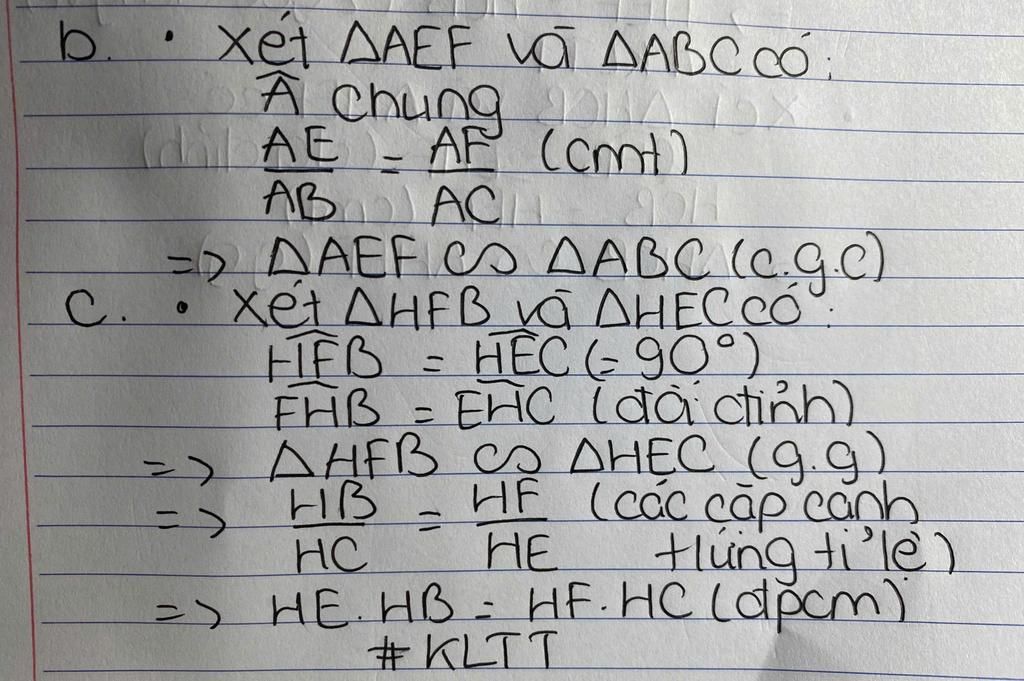 b. • Xét ΔAEF và ΔABC có:
Â chung
AE/AB = AF/AC (cmt)
=> ΔAEF ∽ ΔABC (c.g.c)
c. • Xét ΔHFB và ΔHEC có:
HFB = HEC (= 90°)
FHB = EHC (đối đỉnh)
=> ΔHFB ∽ ΔHEC (g.g)
=> HB/HC = HF/HE (các cặp cạnh
tứng tỉ lệ)
=> HE.HB = HF.HC (đpcm)
# KLTT